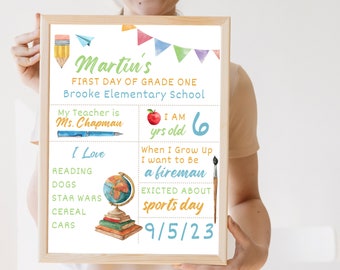 Martin's
FIRST DAY OF GRADE ONE
Brooke Elementary School
My Teacher is
Ms. Chapman
I AM
yrs old 6
I Love
READING
DOGS
STAR WARS
CEREAL
CARS
When I Grow Up
I want to Be
a fireman
EXICTED ABOUT
sports day
9/5/23